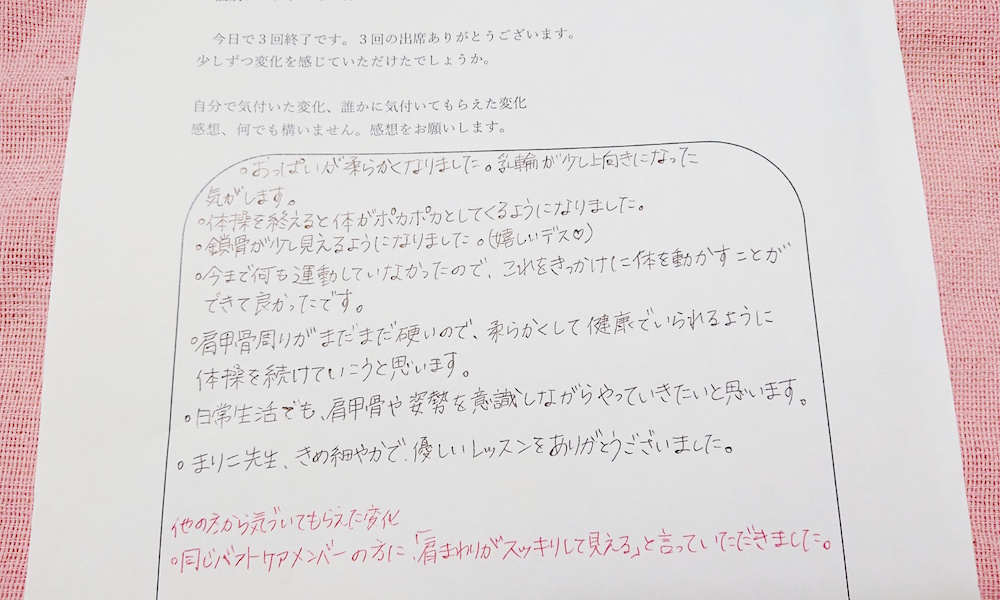 今日で3回終了です。3回の出席ありがとうございます。
少しずつ変化を感じていただけたでしょうか。
自分で気付いた変化、誰かに気付いてもらえた変化
感想、何でも構いません。感想をお願いします。
○おっぱいが柔らかくなりました。乳輪が少し上向きになった
気がします。
○体操を終えると体がポカポカとしてくるようになりました。
○鎖骨が少し見えるようになりました。(嬉しいデス♡)
○今まで何も運動していなかったので、これをきっかけに体を動かすことが
できて良かったです。
○肩甲骨周りがまだまだ硬いので、柔らかくして健康でいられるように
体操を続けていこうと思います。
○日常生活でも、肩甲骨や姿勢を意識しながらやっていきたいと思います。
○まりこ先生、きめ細やかで、優しいレッスンをありがとうございました。
他の方から気づいてもらえた変化
○同じバストケアメンバーの方に、「肩まわりがスッキリして見える」と言っていただきました。